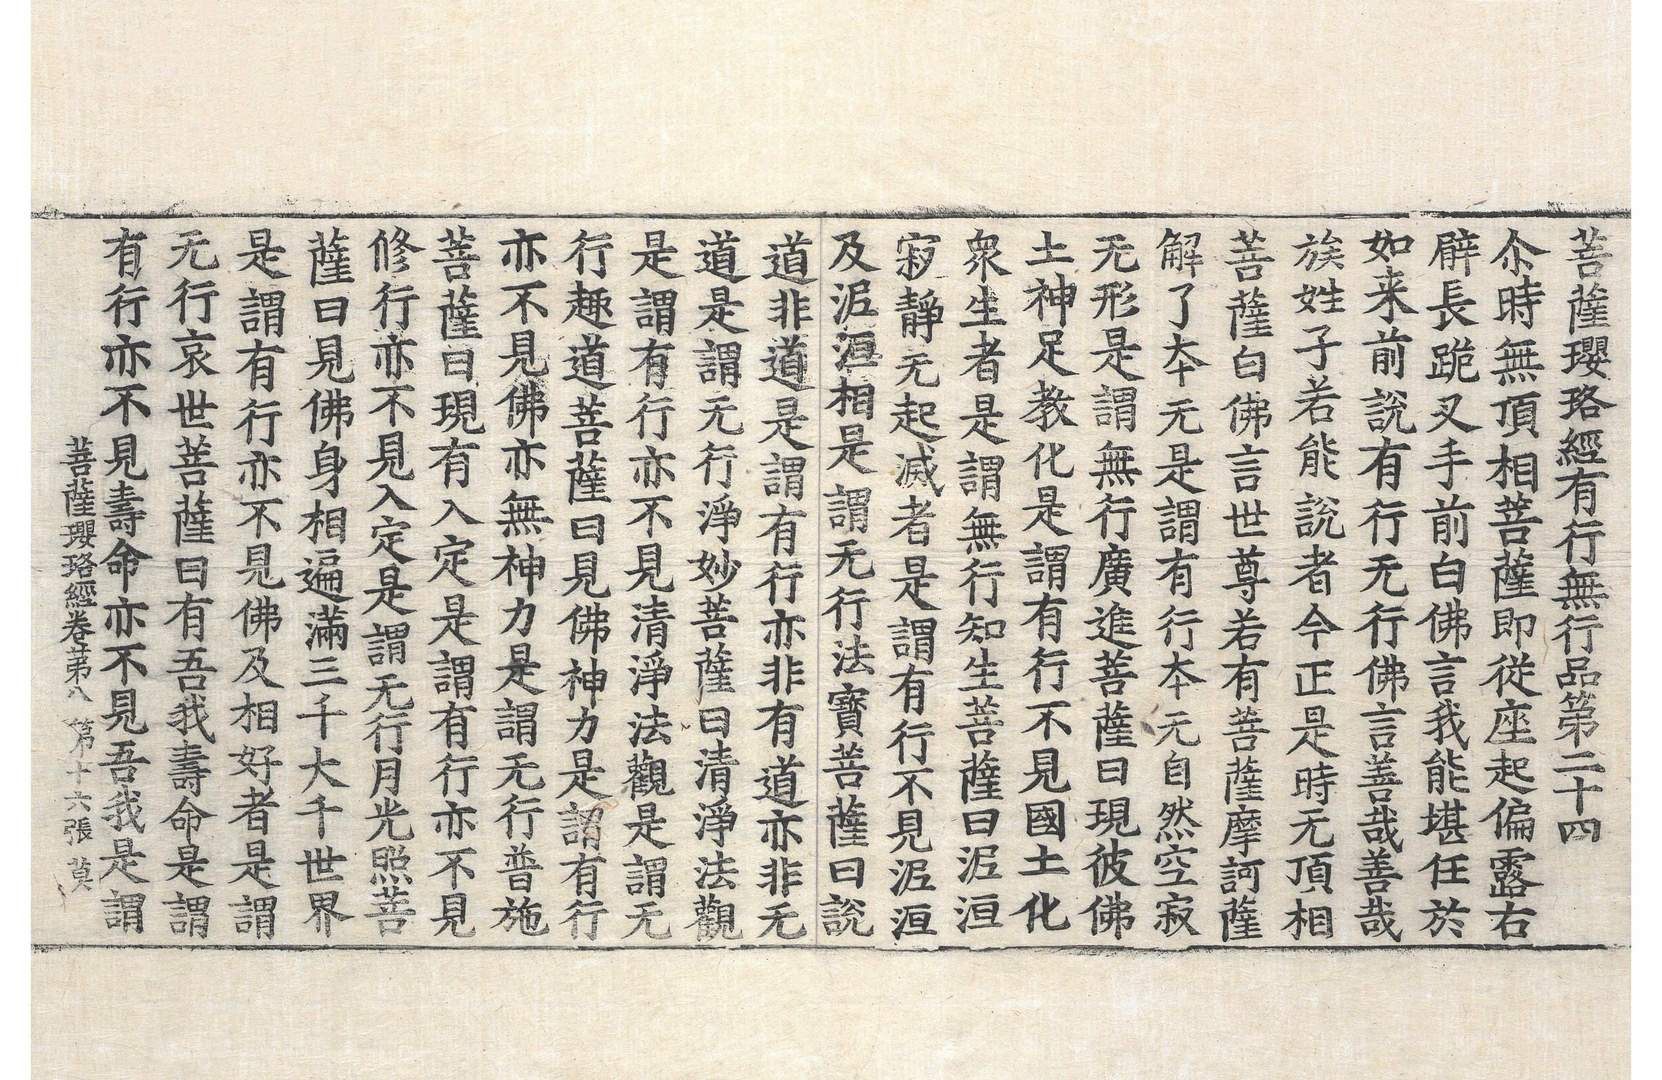 菩薩瓔珞經有行無行品第二十四
尒時無頂相菩薩即從座起偏露右
臂長跪叉手前白佛言我能堪任於
如来前說有行无行佛言善哉善哉
族姓子若能說者今正是時无頂相
菩薩白佛言世尊若有菩薩摩訶薩
解了夲无是謂有行夲无自然空寂
无形是謂無行廣進菩薩曰現彼佛
土神足教化是謂有行不見國土化
衆生者是謂無行知生菩薩曰泥洹
寂靜无起滅者是謂有行不見泥洹
及泥洹相是謂无行法寶菩薩曰說
道非道是謂有行亦非有道亦非无
道是謂无行淨妙菩薩曰清淨法觀
是謂有行亦不見清淨法觀是謂无
行趣道菩薩曰見佛神力是謂有行
亦不見佛亦無神力是謂无行普施
菩薩曰現有入定是謂有行亦不見
修行亦不見入定是謂无行月光照菩
薩曰見佛身相遍滿三千大千世界
是謂有行亦不見佛及相好者是謂
无行哀世菩薩曰有吾我壽命是謂
有行亦不見壽命亦不見吾我是謂
菩薩瓔珞經卷第八 第十六張 莫